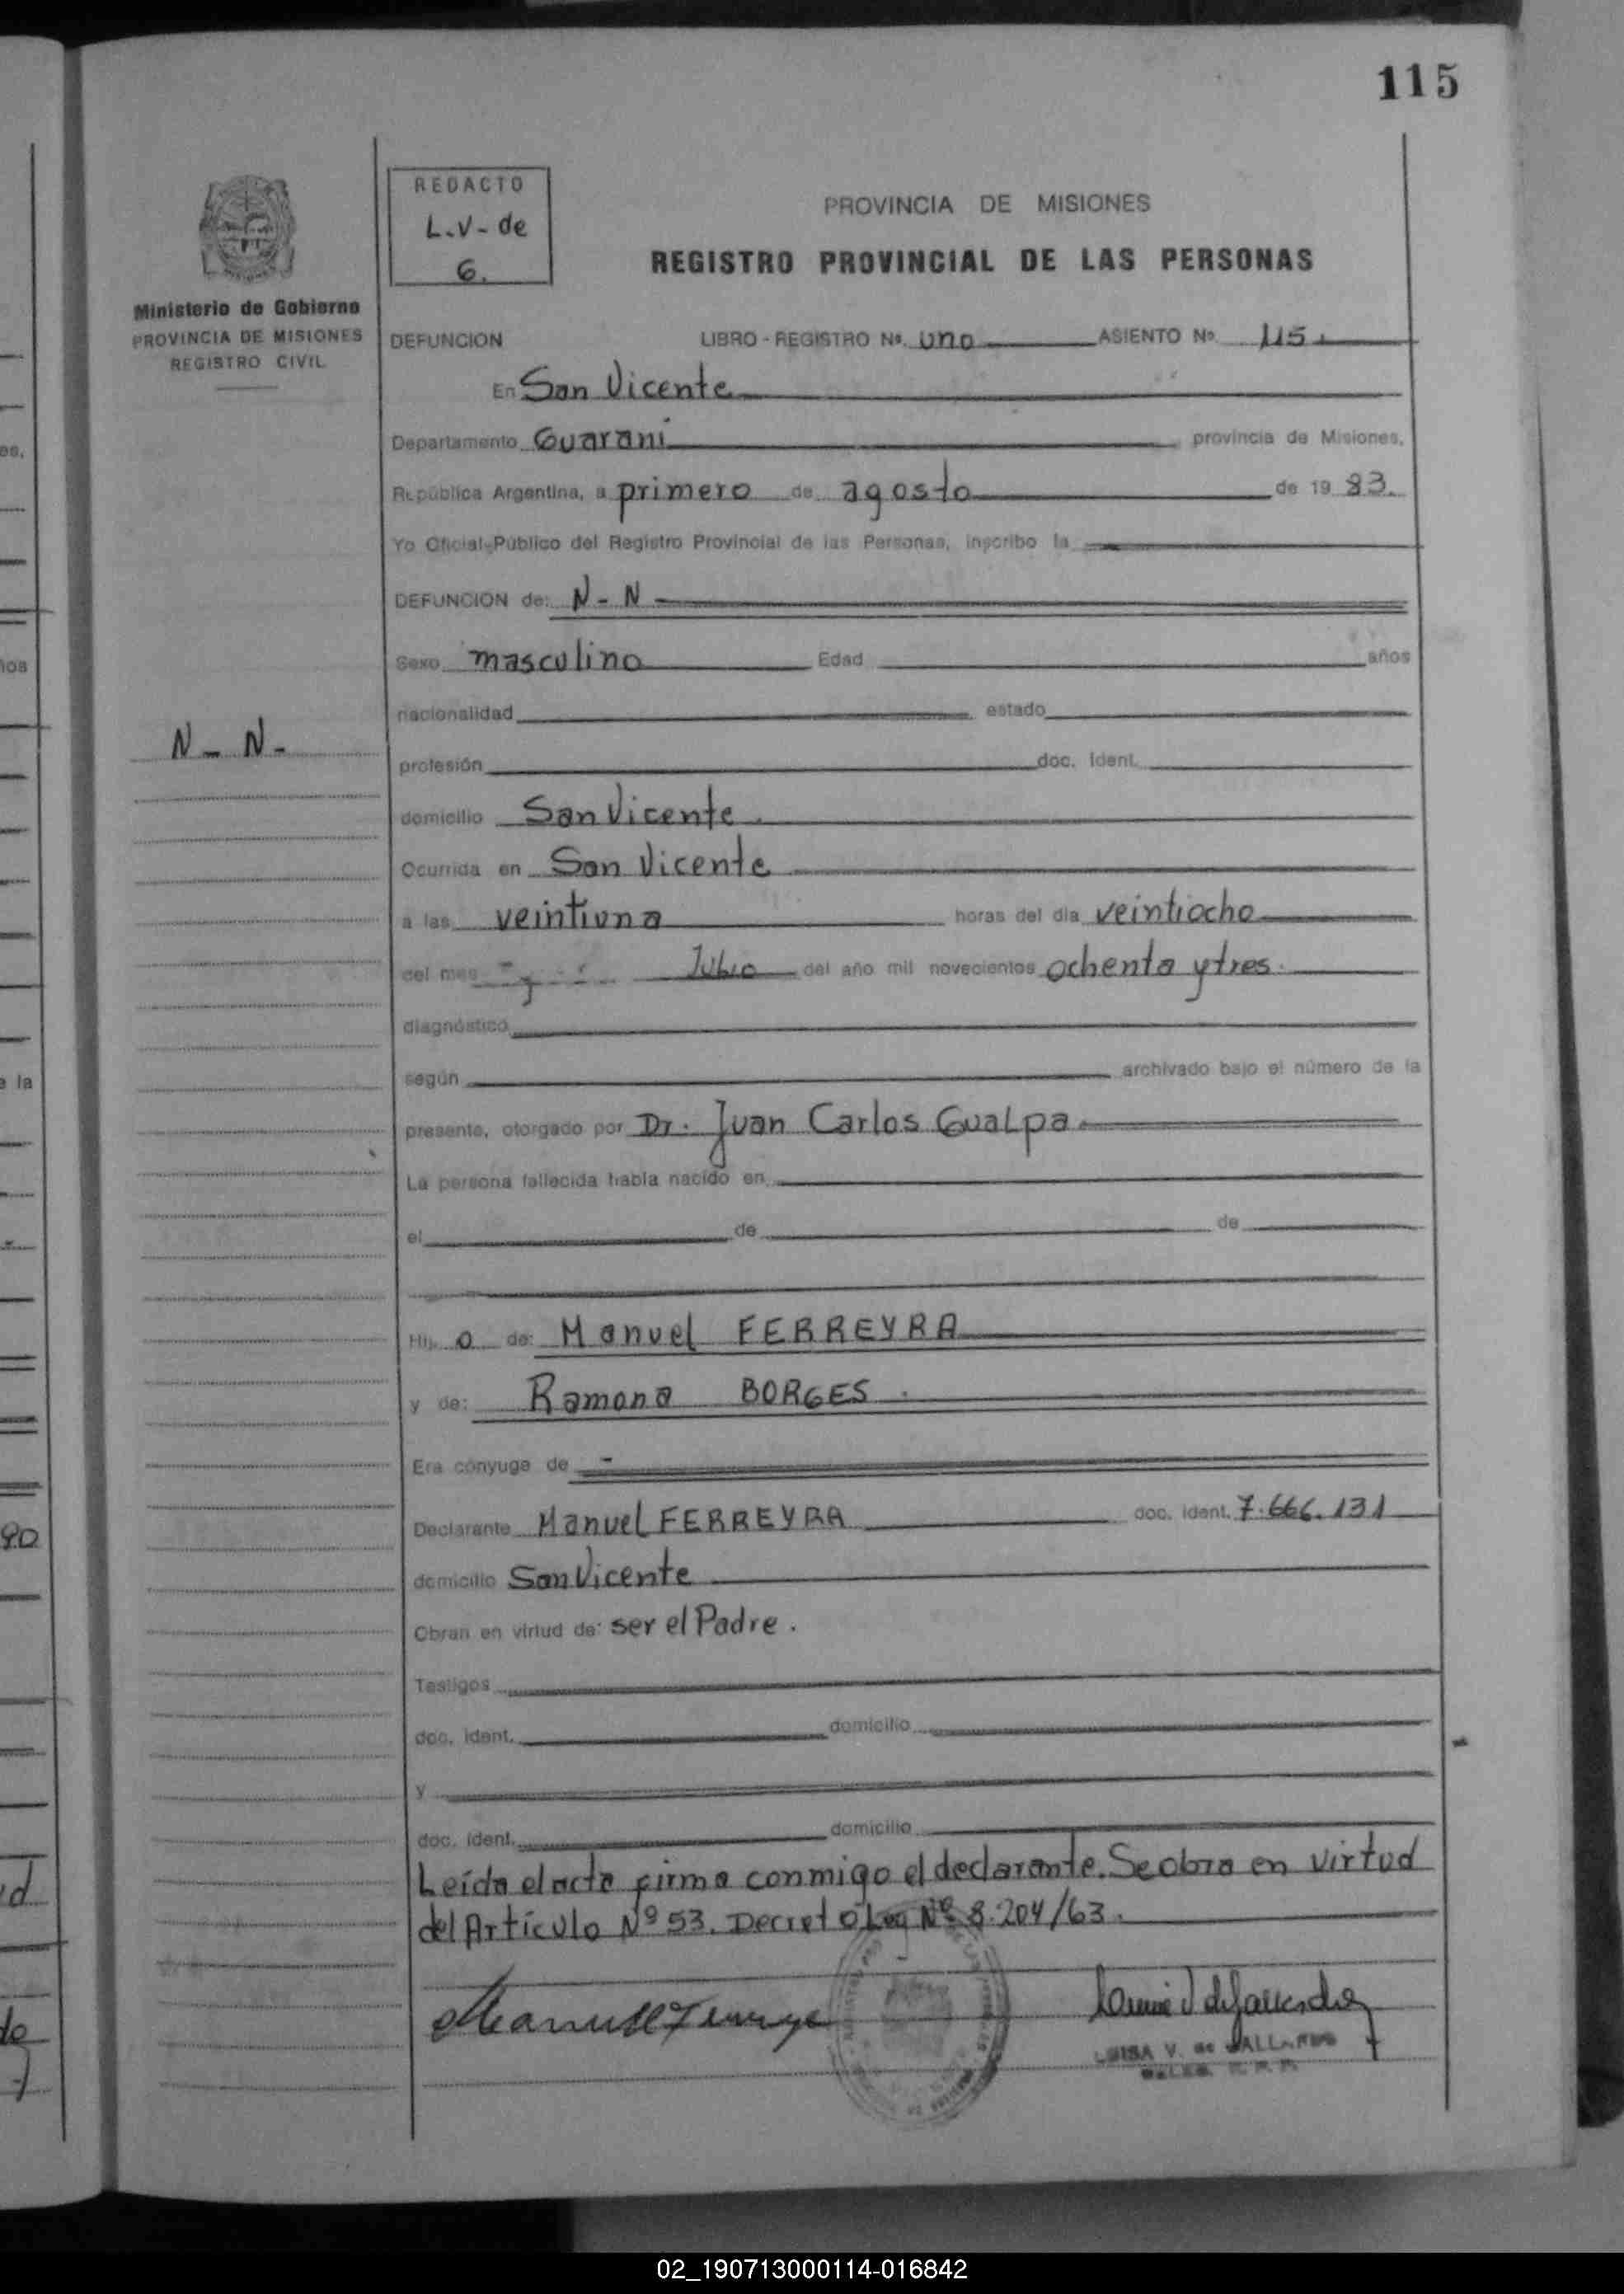 115
REDACTO
L.V- de
6.
PROVINCIA DE MISIONES
REGISTRO PROVINCIAL DE LAS PERSONAS
Ministerio de Gobierno
PROVINCIA DE MISIONES
REGISTRO CIVIL
DEFUNCION LIBRO - REGISTRO Nº. uno ASIENTO Nº. 115.
En San Vicente
Departamento Guarani provincia de Misiones,
República Argentina, a primero de agosto de 19 83.
Yo Oficial Público del Registro Provincial de las Personas, inscribo la
DEFUNCION de: N - N
Sexo masculino Edad años
nacionalidad estado
N - N -
profesión doc. ident.
domicilio San Vicente.
Ocurrida en San Vicente
a las veintiuna horas del dia veintiocho
del mes Julio del año mil novecientos ochenta y tres.
diagnóstico
según archivado bajo el número de la
presente, otorgado por Dr. Juan Carlos Gualpa.
La persona fallecida habla nacido en
el de de
Hij o de: Manuel FERREYRA
y de: Ramona BORGES.
Era cónyuge de -
Declarante Manuel FERREYRA doc. ident. 7.666.131
domicilio San Vicente
Obran en virtud de: ser el Padre.
Testigos
doc. ident. domicilio
y
doc. ident. domicilio
Leída el acta firma conmigo el declarante. Se obra en virtud
del Artículo Nº 53. Decreto Ley Nº 8.204/63.
LUISA V. de GALLARDO
es,
ños
e la
90
02_190713000114-016842